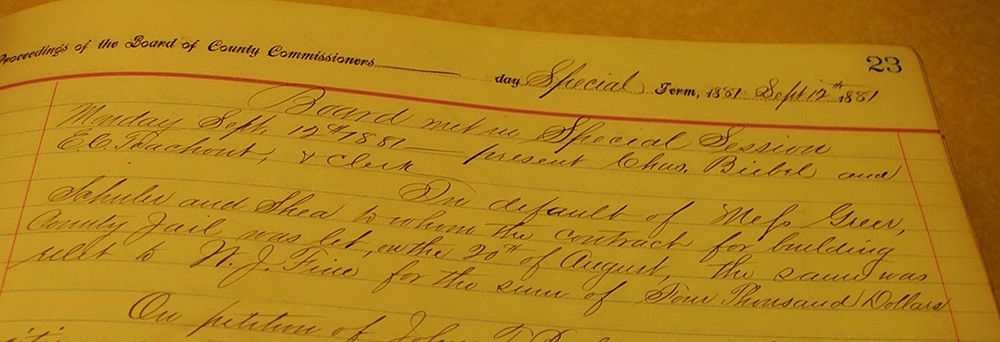 23
Proceedings of the Board of County Commissioners day Special Term, 1881 Sept 12th 1881
Board met in Special Session
Monday Sept. 12th 1881 — present Chas. Biebel and
E.C. & Clerk
On default of Mess Greer,
Schuler and Shea to whom the contract for building
County Jail was let, on the 20th of August, the same was
relet to W. J. Fine for the sum of Four Thousand Dollars
On petition of John T.